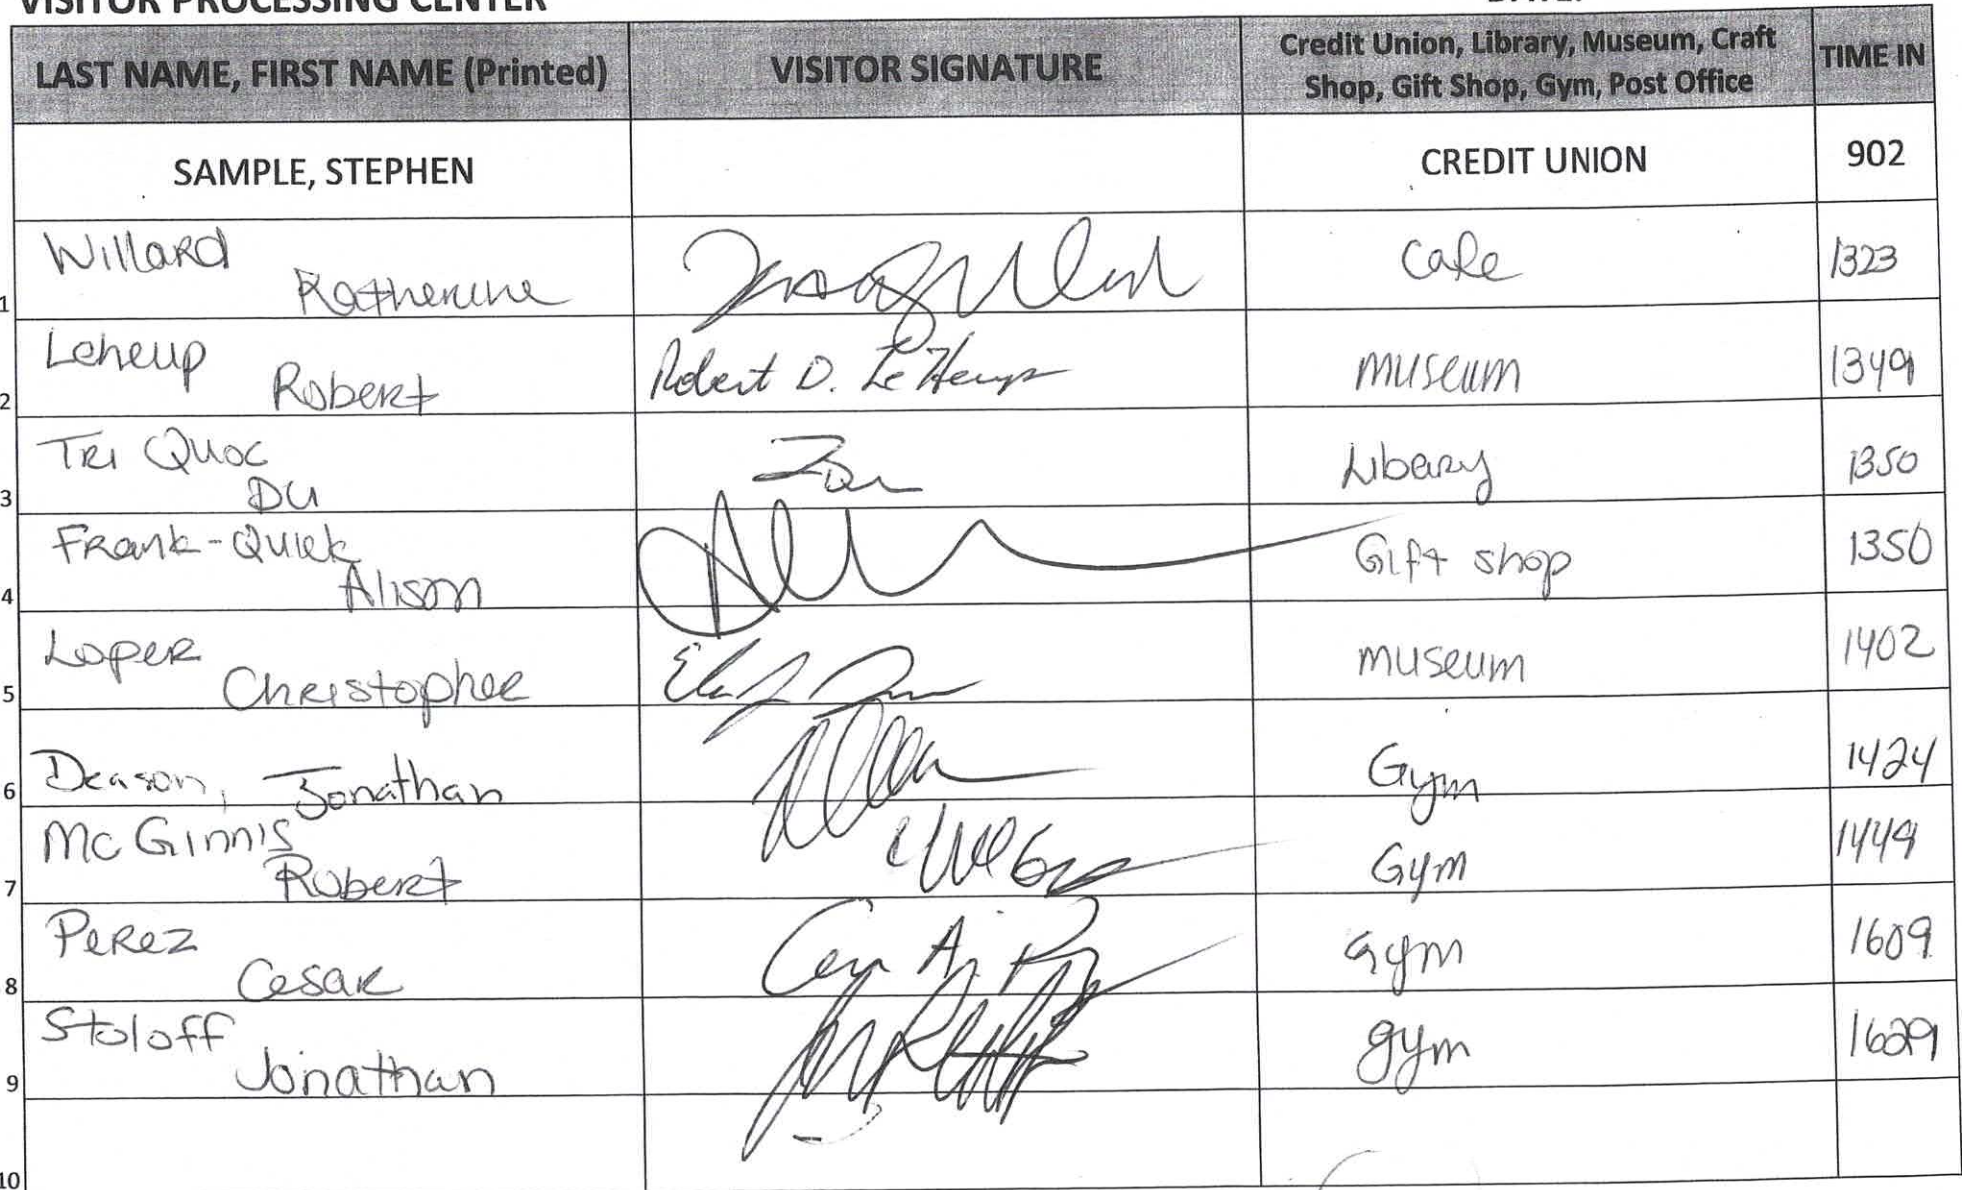 VISITOR PROCESSING CENTER
LAST NAME, FIRST NAME (Printed)
VISITOR SIGNATURE
Credit Union, Library, Museum, Craft
Shop, Gift Shop, Gym, Post Office
TIME IN
SAMPLE, STEPHEN
CREDIT UNION
902
1
Willard
Katherine
Cafe
1323
2
Leheup
Robert
Robert D. LeHeup
museum
1349
3
Tri Quoc
Du
Libary
1350
4
Frank-Quick
Alison
Gift shop
1350
5
Loper
Christopher
museum
1402
6
Deason, Jonathan
Gym
1424
7
McGinnis
Robert
Gym
1449
8
Perez
Cesar
Gym
1609
9
Stoloff
Jonathan
gym
1629
10